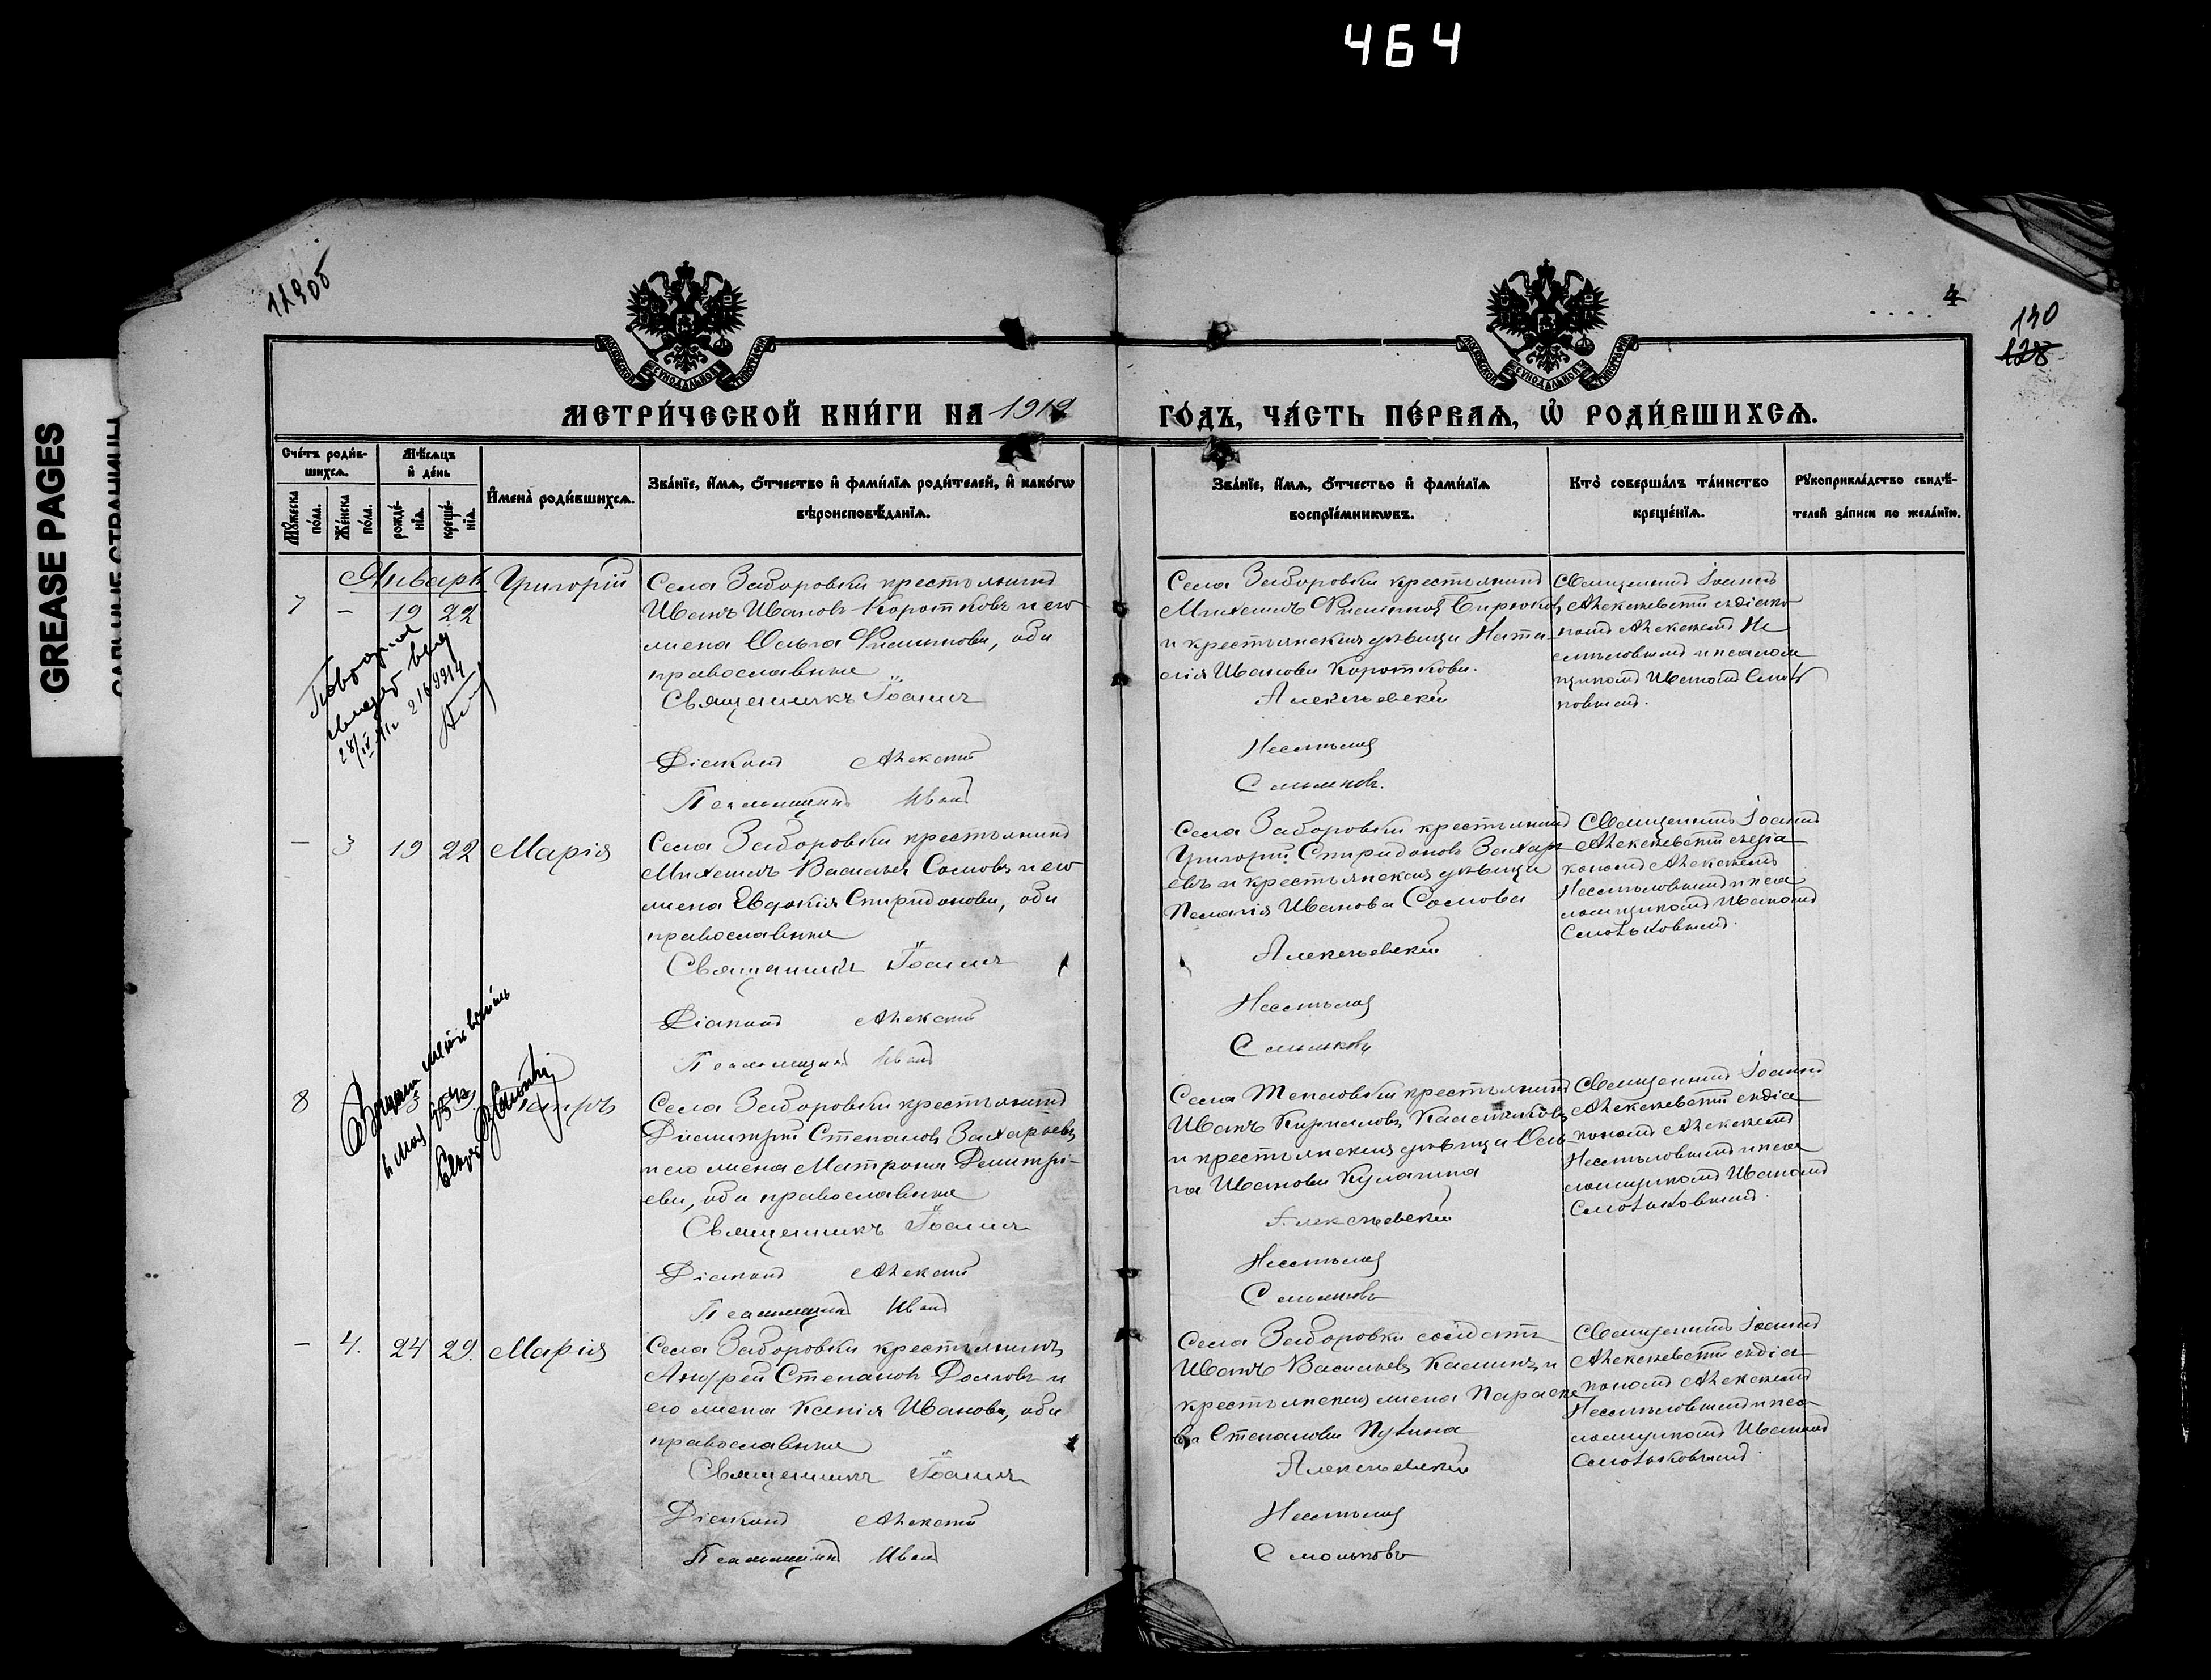 464
GREASE PAGES
4
130
128
МЕТРИ́ЧЕСКОЙ КНИ́ГИ НА 1912 ГО́ДЪ, ЧА́СТЬ ПЕ́РВАѦ, Ѽ РОДИ́ВШИХСѦ.
Сче́тъ роди́в-
шихсѧ.
Мѣ́сѧцъ
и҆ де́нь
Мꙋ́жеска
по́ла.
Же́нска
по́ла.
рожде́-
нїѧ.
креще́-
нїѧ.
И҆мена̀ роди́вшихсѧ.
Зва́нїе, и҆́мѧ, ѻ҆́тчество и҆ фами́лїѧ роди́телей, и҆ како́гѡ
вѣроисповѣ́данїѧ.
Зва́нїе, и҆́мѧ, ѻ҆́тчество и҆ фами́лїѧ
воспрїе́мникѡвъ.
Кто̀ соверша́лъ та́инство
креще́нїѧ.
Рꙋкоприкла́дство свидѣ́-
телей за́писи по жела́нїю.
Январь
7 - 19 22 Григорій
Села Заборовки крестьянинъ
Иванъ Ивановъ Коротковъ и его
жена Ольга Филиппова, оба
православные
Священникъ Іоаннъ
Діаконъ Алексій
Псаломщикъ Иванъ
Села Заборовки крестьянинъ
Михаилъ Филипповъ Бирюковъ
и крестьянская дѣвица Ната-
лія Иванова Короткова.
Алексѣевскій
Несмѣловъ
Смольковъ.
Священникъ Іоаннъ
Алексѣевскій съ діако-
номъ Алексіемъ Не
смѣловымъ и псалом
щикомъ Иваномъ Смоль
ковымъ.
- 3 19 22 Марія
Села Заборовки крестьянинъ
Михаилъ Васильевъ Сомовъ и его
жена Евдокія Спиридонова, оба
православные
Священникъ Іоаннъ
Діаконъ Алексій
Псаломщикъ Иванъ
Села Заборовки крестьянинъ
Григорій Спиридоновъ Захарь
евъ и крестьянская дѣвица
Пелагія Иванова Сомова
Алексѣевскій
Несмѣловъ
Смольковъ
Священникъ Іоаннъ
Алексѣевскій съ діа
кономъ Алексіемъ
Несмѣловымъ и пса
ломщикомъ Иваномъ
Смольковымъ.
8 Петръ
Села Заборовки крестьянинъ
Димитрій Степановъ Захарьевъ
и его жена Матрона Димитрі-
ева, оба православные
Священникъ Іоаннъ
Діаконъ Алексій
Псаломщикъ Иванъ
Села крестьянинъ
Иванъ Кирилловъ Калашниковъ
и крестьянская дѣвица Оль-
га Иванова Кулагина
Алексѣевскій
Несмѣловъ
Смольковъ
Священникъ Іоаннъ
Алексѣевскій съ діа
кономъ Алексіемъ
Несмѣловымъ и пса
ломщикомъ Иваномъ
Смольковымъ.
- 4. 24 29. Марія
Села Заборовки крестьянинъ
Андрей Степановъ Доловъ и
его жена Ксенія Иванова, оба
православные
Священникъ Іоаннъ
Діаконъ Алексій
Псаломщикъ Иванъ
Села Заборовки солдатъ
Иванъ Васильевъ Калинъ и
крестьянская жена Параске
ва Степанова
Алексѣевскій
Несмѣловъ
Смольковъ
Священникъ Іоаннъ
Алексѣевскій съ діа
кономъ Алексіемъ
Несмѣловымъ и пса
ломщикомъ Иваномъ
Смольковымъ.